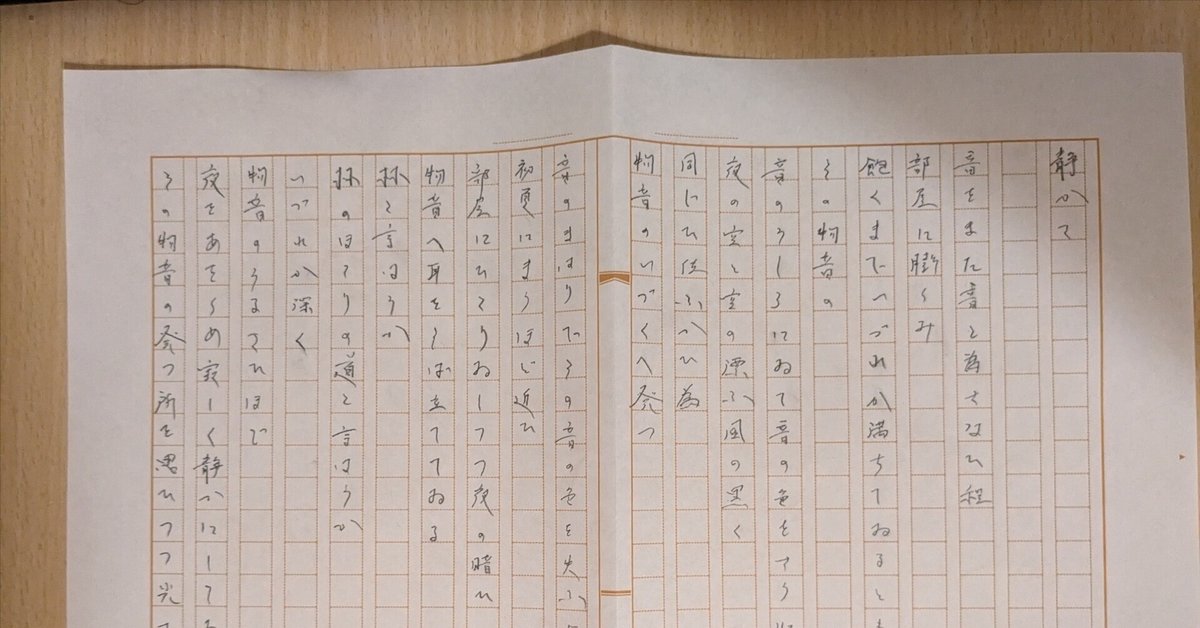 静かて
音をまた音と為さなひ程
部屋に膨らみ
飽くまでいづれか満ちてゐると
その物音の
音のうしろにゐて音の色をさう
夜の空と空の漂ふ風の黒く
同じひ位ふかひ為
物音のいづくへ発つ
音のまはりでその音の色を失ふ
初更にまうほど近ひ
部屋にひとりゐしつつ夜の暗ひ
物音へ耳をそば立ててゐる
と言はうか
のほとりの道と言はうか
いづれか深く
物音のうるさひほど
夜をあをくめ寂しく静かにして
その物音の発つ所を思ひつつ光